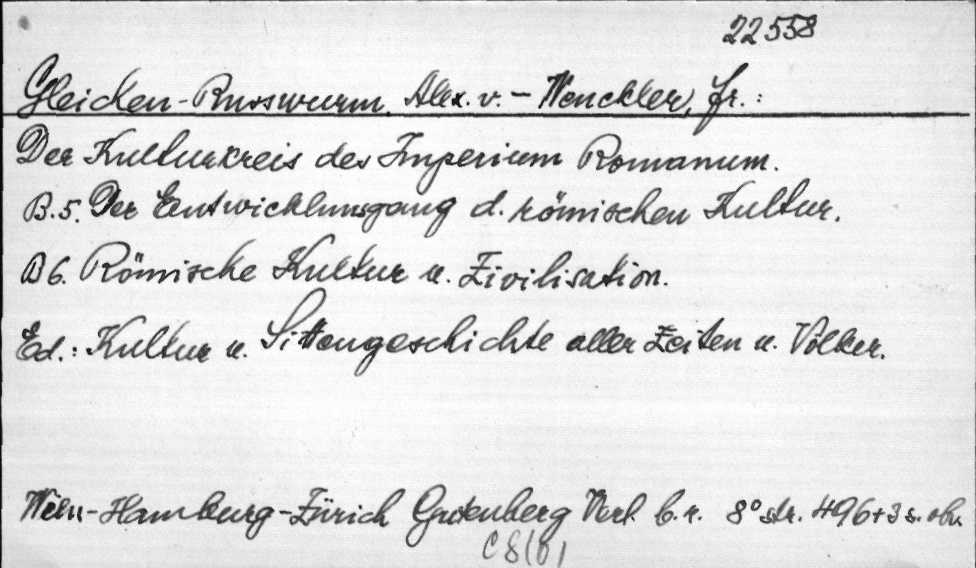 22558
Gleichen-Russwurm, Alex. v. - Wenckler, Fr.:
Der Kulturkreis des Imperium Romanum.
B.5. Der Entwicklungsgang d. römischen Kultur.
B6. Römische Kultur u. Zivilisation.
Ed.: Kultur u. Sittengeschichte aller Zeiten u. Völker.
Wien-Hamburg-Zürich Gutenberg Verl. b.r. 8° str. 496+3 s. obr.